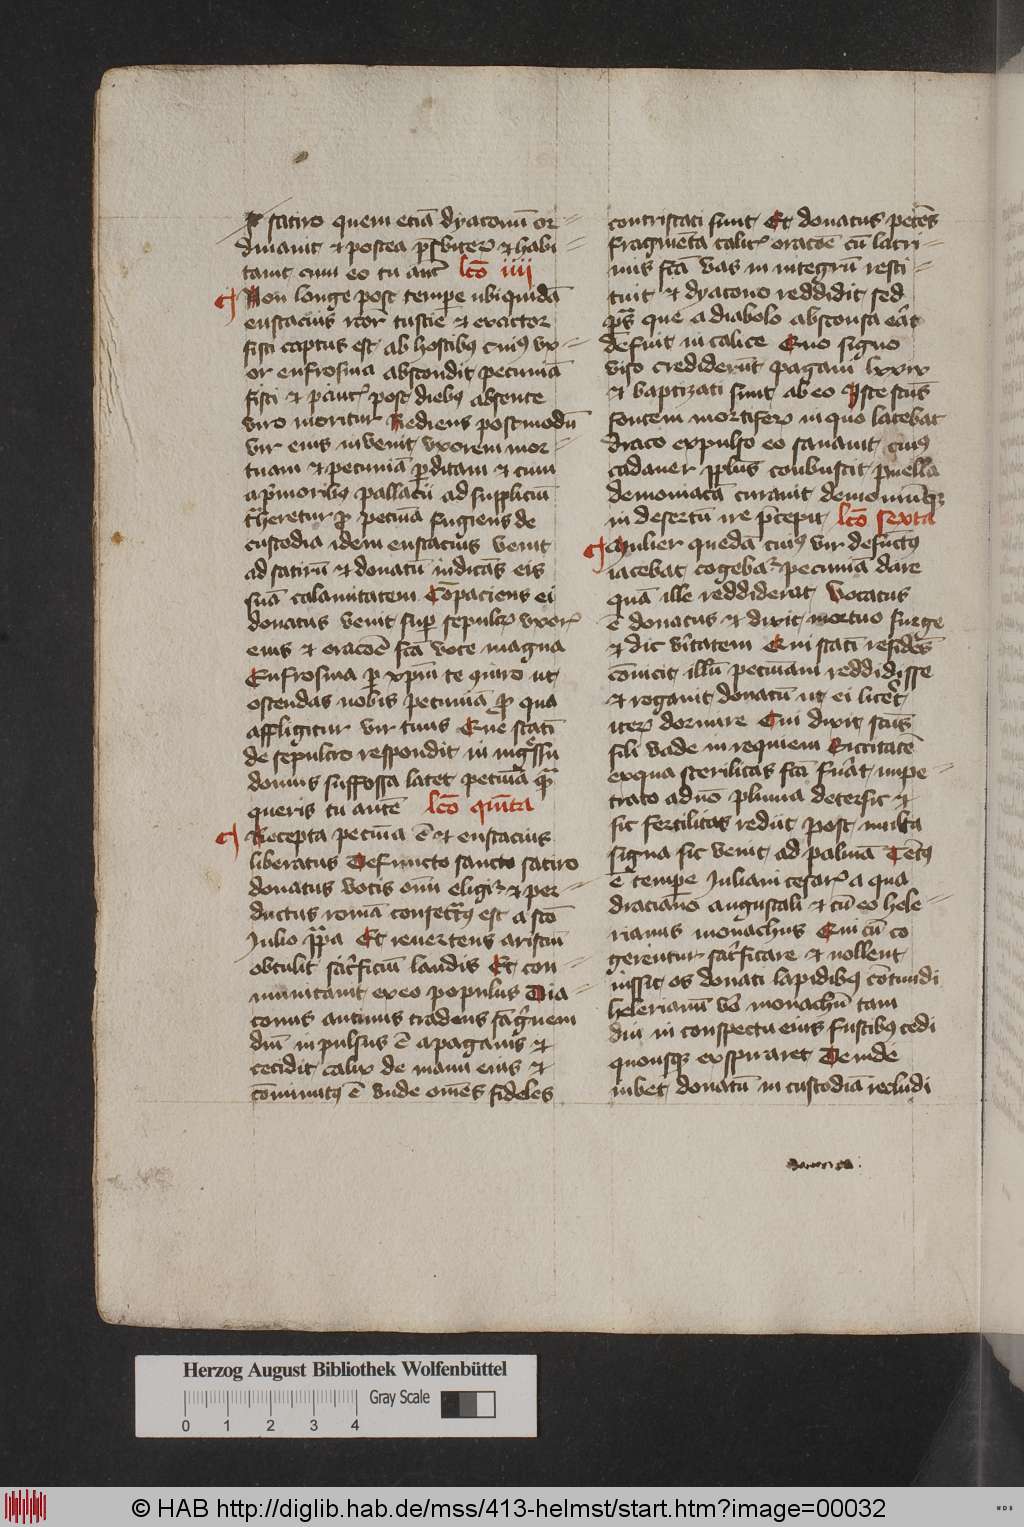 satiro quem etiā dyaconū or-
dinauit et postea p̄sbiterū et habi-
tauit cum eo tu aut̄ lc̄o iiii
Non longe post tempꝰe ubi quidā
eustacius rc̄or tuscie et exactor
fisci captus est ab hostibꝫ cuiꝰ vx-
or eufrosina abscondit pecuniā
fisci et paucꝭ post diebꝫ absente
viro moritur Rediens postmodū
vir eius inuenit vxorem mor-
tuam et pecuniā ꝑditam et cum
a p̄moribꝫ pallacii ad suppliciū
t̄heretur ꝓ pecūia fugiens de
custodia idem eustacius venit
ad satirū et donatū indicās eis
suā calamitatem Cōpaciens ei
donatus venit suꝑ sepulcrꝫ vxorꝭ
eius et orac̄oe fc̄a voce magna
Eufrosina ꝑ xp̄m te quiro ut
ostendas nobis pecuniā ꝓ qua
affligitur vir tuus Que statī
de sepulcro respondit in ingr̄ssu
domus suffossa latet pecūia qā
queris tu autē lc̄o quīta
Recepta pecūia ē et eustacius
liberatus Defuncto sancto satiro
donatus votis oīm eligiꝭ et per-
ductus romā consecr̄tꝰ est a sc̄o
Julio pp̄a Et reuertens aricīū
obtulit sac̄rficiū laudis Et con-
municauit ex eo populus Dia-
conus antimus tradens sāgr̄nem
dn̄i inpulsus ē a paganis et
cecidit calix de manu eius et
cōminutꝰ ē vnde om̄es fideles
contristati sunt Et donatus petēs
fragmēta calicꝭ orac̄oe cū lacri-
mis fc̄a vas in integrū resti-
tuit et dyacono reddidit sed
ps̄ que a diabolo absconsa eāt
defuit in calice Quo signo
viso crediderūt pagani lxxix
et baptizati sunt ab eo Iste sc̄us
fontem mortiferꝫ in quo latebat
draco expulso eo sanauit cuiꝰ
cadauer pp̄lus conbuscit puella
demoniacā curauit demoniūqꝫ
in desertū ire p̄cepit lc̄o sexta
Mulier quedā cuiꝰ vir defūctꝰ
iacebat cogebaꝭ pecuniā dare
quā ille reddiderat Vocatus
ē donatus et dixit mortuo surge
et dic v̄itatem Qui statī residēs
cōuicit illū pecuniam reddidisse
et rogauit donatū ut ei licer̄t
iterꝫ dormire Cui dixit sc̄us
fili vade in requiem Siccitatē
ex qua sterilitas fc̄a fūat impe-
trato ad n̄o pluuia detersit et
sic fertilitas rediit post multa
signa sic venit ad palmā Tētꝰ
ē tempꝰe Juliani cesarꝭ a qua-
draciano augustali et cū eo hele-
rianus monachus Qui cū co-
gerentur sac̄rficare et nollent
iussit os donati lapidibꝫ cōtundi
helerianū v̄o monachū tam
diu in conspectu eius fustibꝫ cedi
quousqꝫ exspiraret Deinde
iubet donatū in custodiā recludi
Herzog August Bibliothek Wolfenbüttel
Gray Scale
0 1 2 3 4
© HAB http://diglib.hab.de/mss/413-helmst/start.htm?image=00032